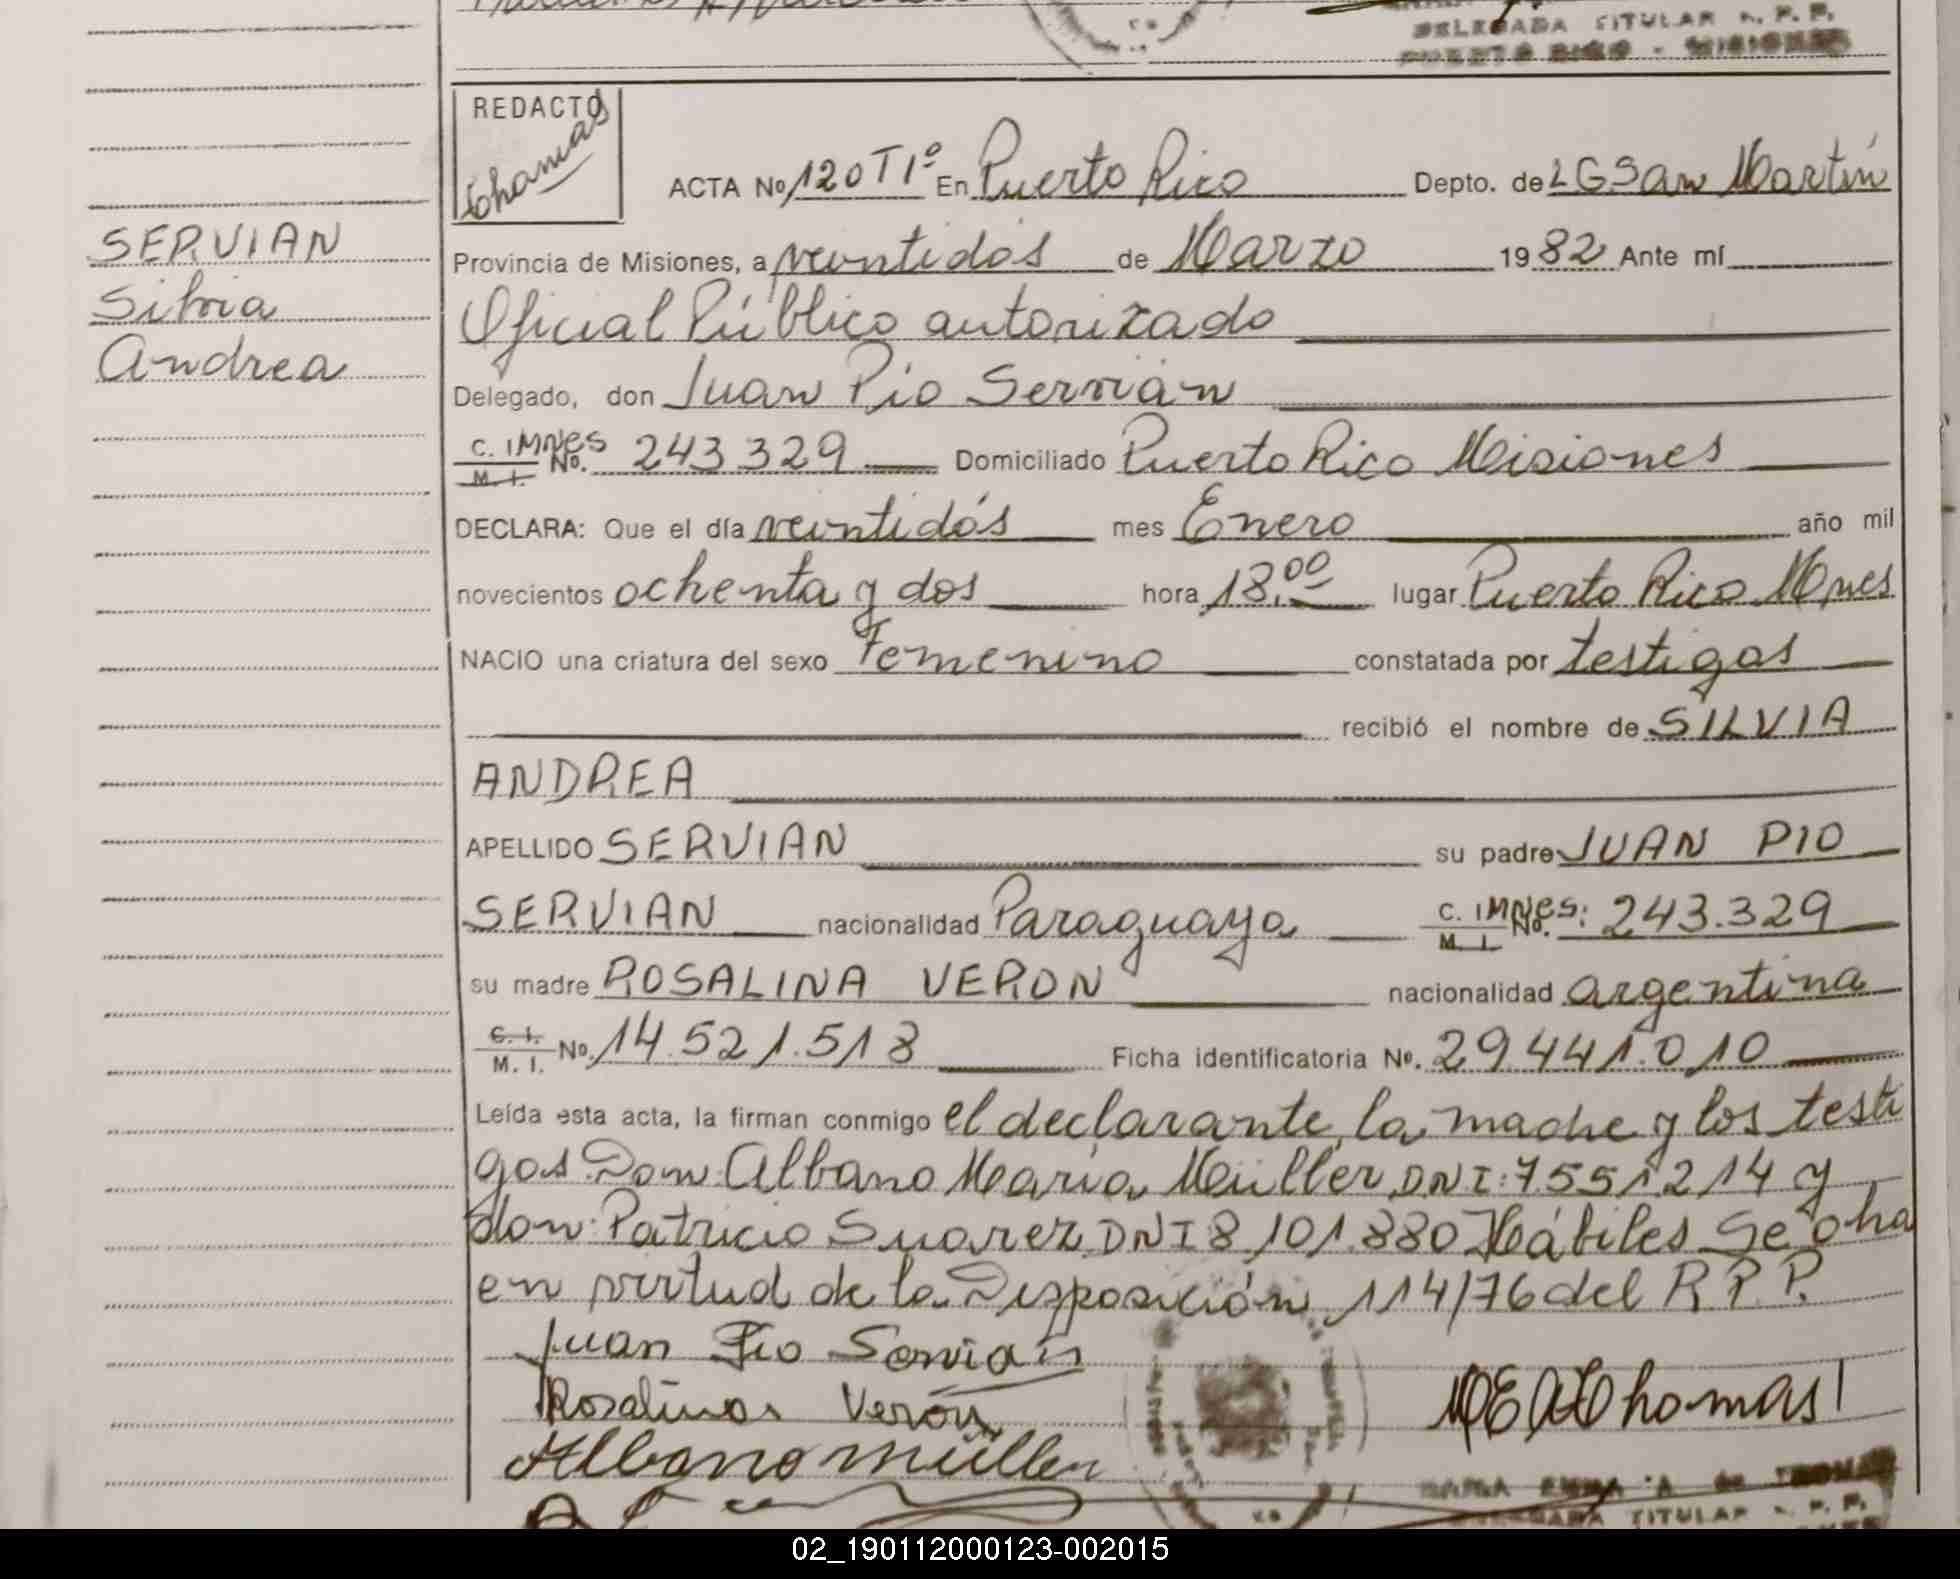 DELEGADA TITULAR R. P. P.
PUERTO RICO - MISIONES
REDACTO
Thomas
ACTA No 120 T1º En Puerto Rico Depto. de L G San Martín
SERVIAN
Silvia
Andrea
Provincia de Misiones, a veintidós de Marzo 1982 Ante mí
Oficial Público autorizado
Delegado, don Juan Pio Servián
C. I. MNES No. 243329 Domiciliado Puerto Rico Misiones
M. I.
DECLARA: Que el día veintidós mes Enero año mil
novecientos ochenta y dos hora 18,00 lugar Puerto Rico Mnes
NACIO una criatura del sexo Femenino constatada por testigos
recibió el nombre de SILVIA
ANDREA
APELLIDO SERVIAN su padre JUAN PIO
SERVIAN nacionalidad Paraguaya C. I. MNES: No. 243.329
M. I.
su madre ROSALINA VERON nacionalidad argentina
C. I.
M. I. No. 14.521.518 Ficha identificatoria No. 29.441.010
Leída esta acta, la firman conmigo el declarante, la madre y los testi
gos Don: Albano María Müller DNI: 7551214 y
don: Patricio Suarez DNI 8101.880 Hábiles Se
en virtud de la Disposición 114/76 del R.P.P.
Juan Pio Servian
Rosalina Verón
Albano Müller
Thomas
MARIA EMMA A. de THOMAS
DELEGADA TITULAR R. P. P.
02_190112000123-002015